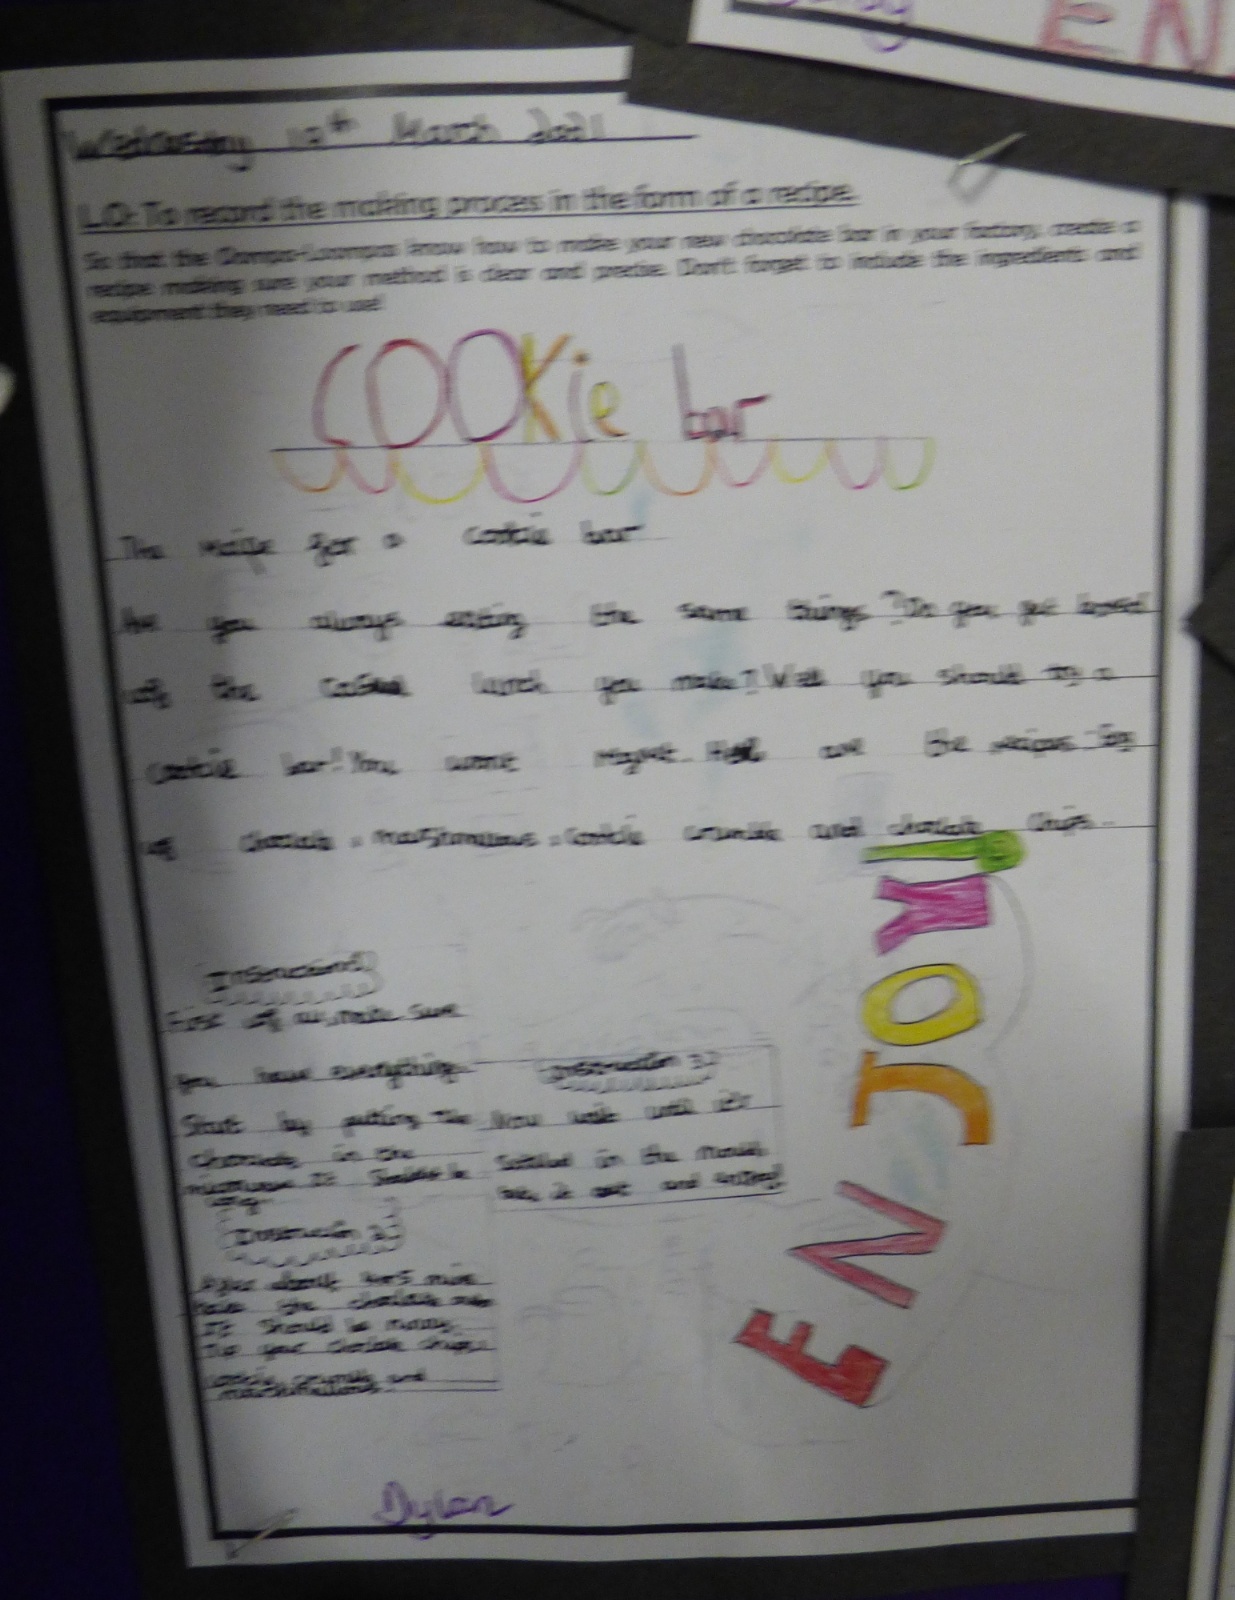 Wednesday 10th March 2021
L.O: To record the making process in the form of a recipe.
So that the Oompa-Loompas know how to make your new chocolate bar in your factory, create a
recipe making sure your method is clear and precise. Don't forget to include the ingredients and
equipment they need to use!
COOKie bar
The recipe for a cookie bar
Are you always eating the same things? Do you get bored
of the lunch you make? Well you should try a
cookie bar! You wont regret. are the
of chocolate, marshmallows, cookie crumble and chocolate chips.
First of all, make sure
you have everything.
Start by putting the
chocolate in the
microwave. It should be
Instruction 2.
After about mins
take the chocolate out
It should be runny.
Tip your chocolate chips,
cookie crumble and
marshmallows.
Instruction 3.
Now wait until it's
settled in the mould
take it out and enjoy!
ENJOY!
Dylan
EN